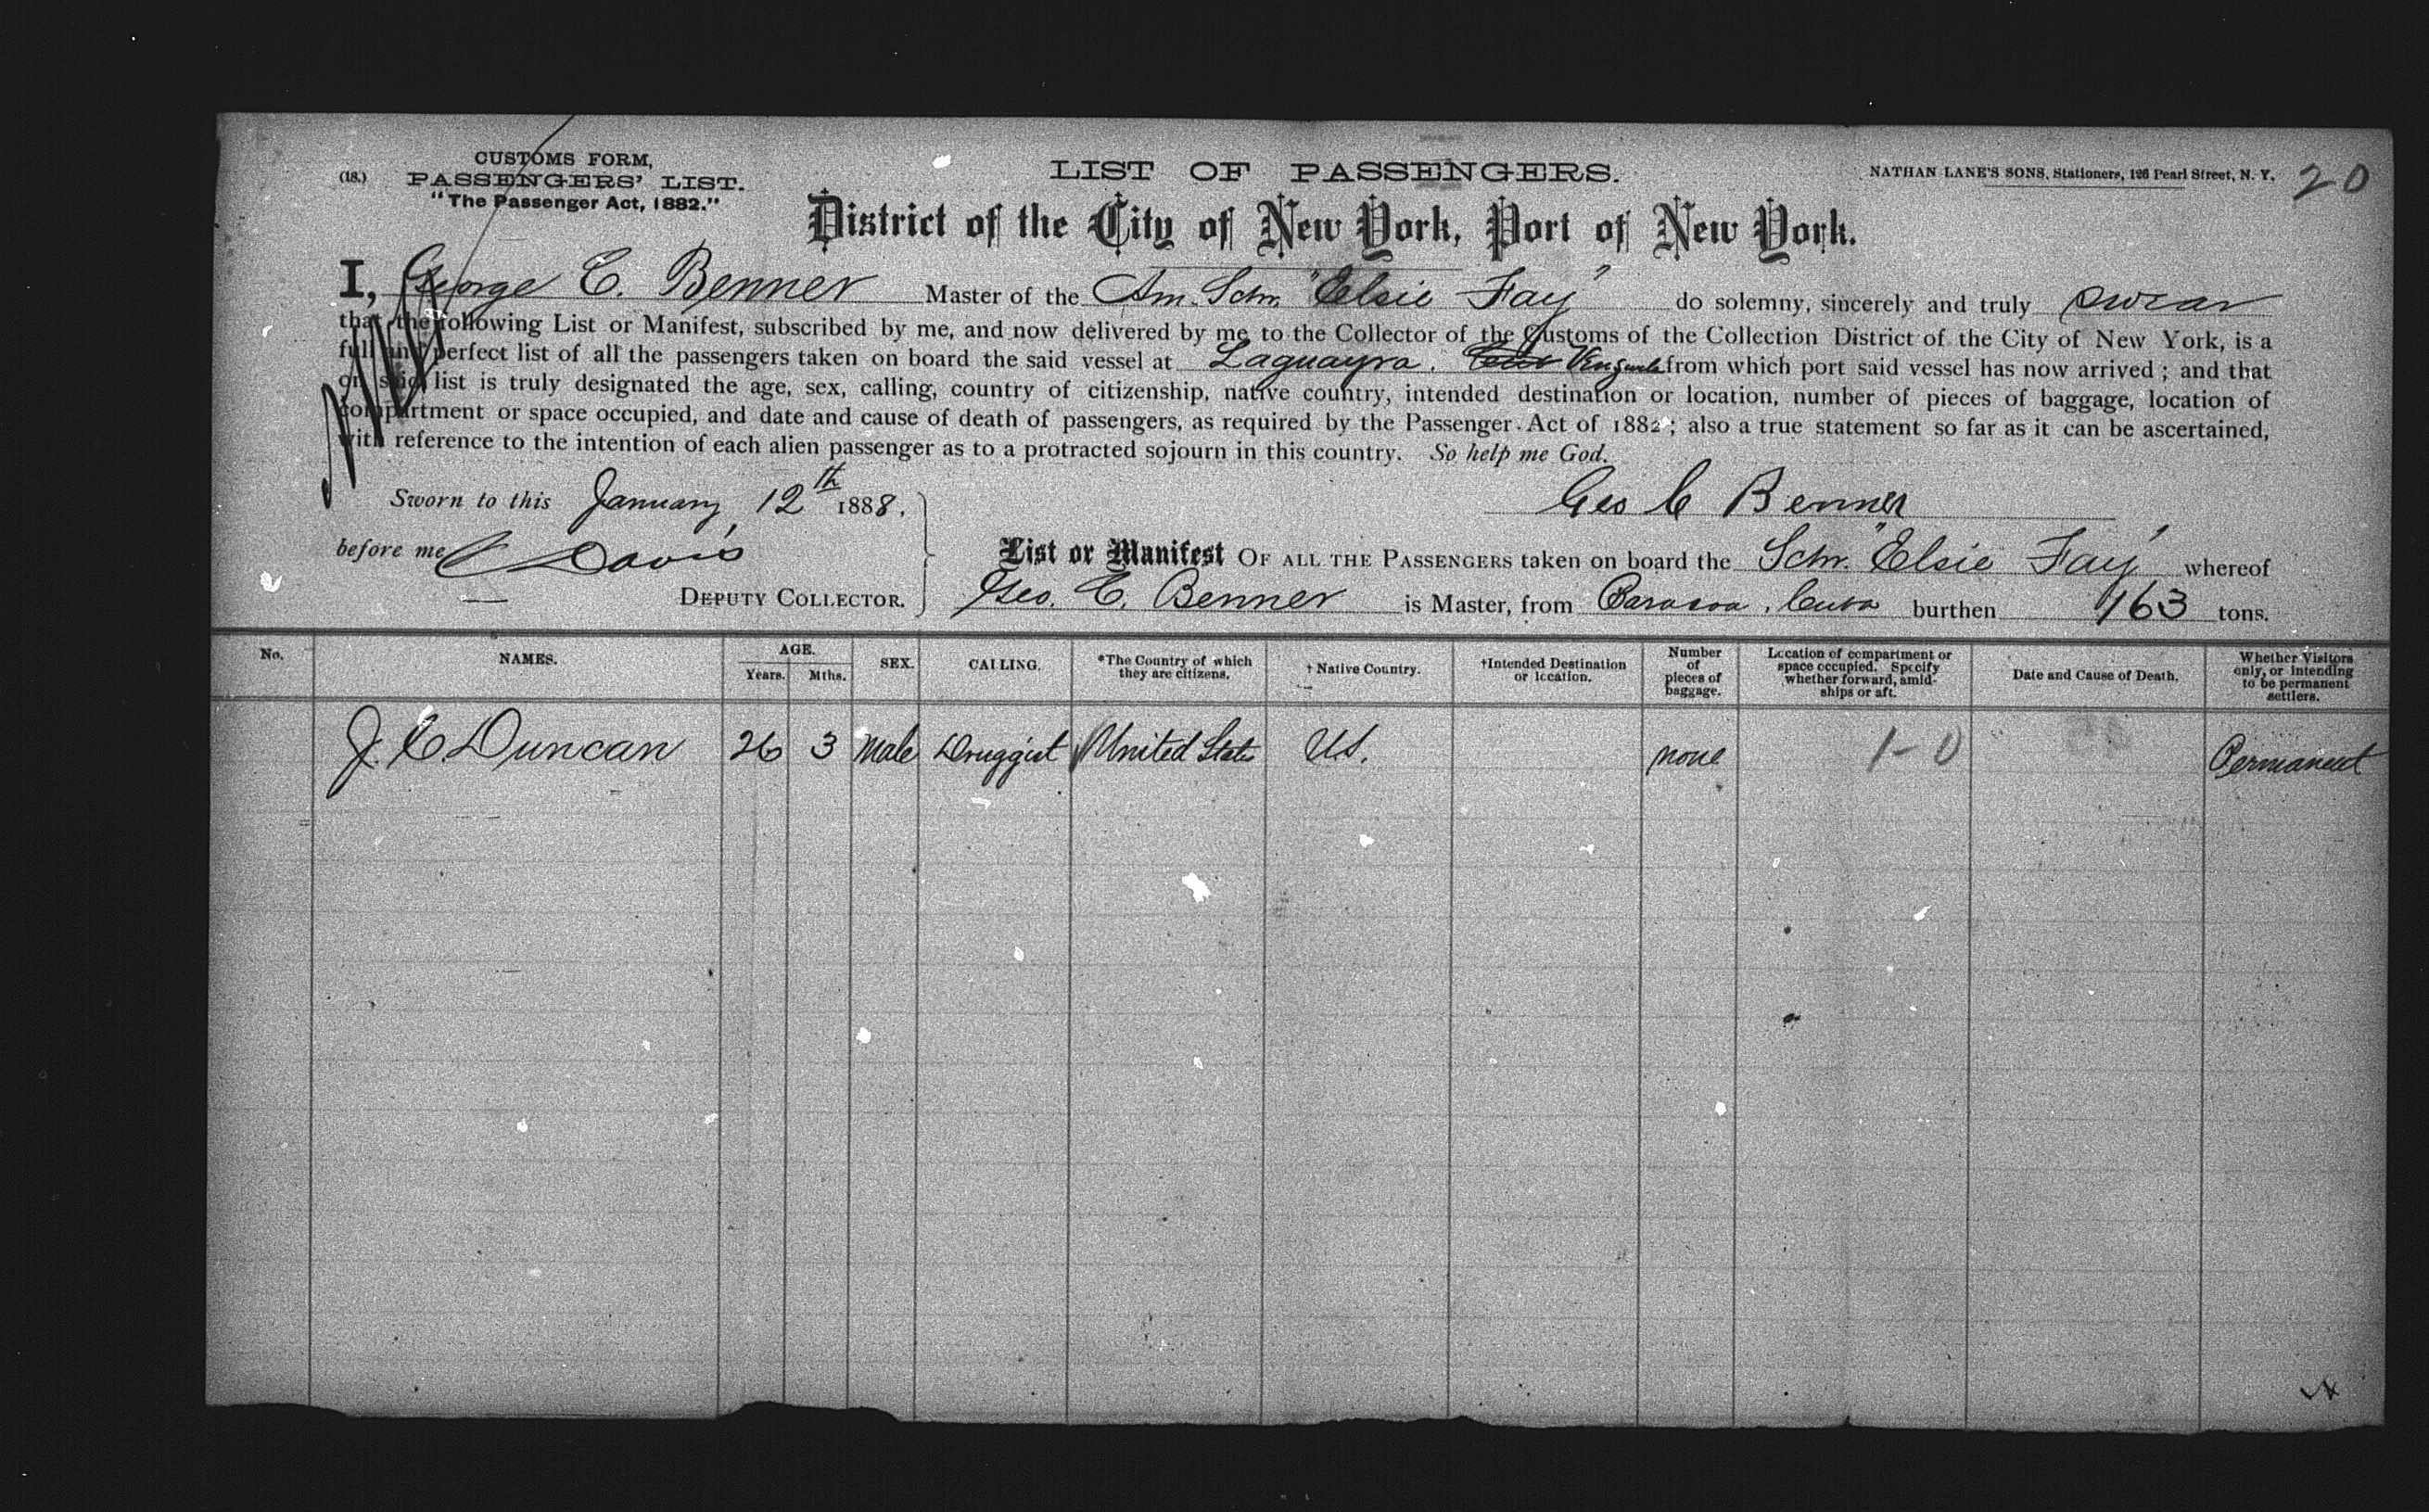 (18.)
CUSTOMS FORM,
PASSENGERS' LIST.
"The Passenger Act, 1882."
LIST OF PASSENGERS.
NATHAN LANE'S SONS, Stationers, 126 Pearl Street, N. Y.
20
District of the City of New York, Port of New York.
I, George C. Benner Master of the Am. Schr. "Elsie Fay" do solemny, sincerely and truly swear
that the following List or Manifest, subscribed by me, and now delivered by me to the Collector of the Customs of the Collection District of the City of New York, is a
full and perfect list of all the passengers taken on board the said vessel at Laguayra. from which port said vessel has now arrived; and that
on said list is truly designated the age, sex, calling, country of citizenship, native country, intended destination or location, number of pieces of baggage, location of
compartment or space occupied, and date and cause of death of passengers, as required by the Passenger Act of 1882; also a true statement so far as it can be ascertained,
with reference to the intention of each alien passenger as to a protracted sojourn in this country. So help me God.
Sworn to this January 12th 1888.
Geo C Benner
before me C Davis
DEPUTY COLLECTOR.
List or Manifest OF ALL THE PASSENGERS taken on board the Schr. "Elsie Fay" whereof
Geo. C. Benner is Master, from Baracoa, Cuba burthen 163 tons.
No. NAMES. AGE. Years. Mths. SEX. CALLING. *The Country of which they are citizens. † Native Country. †Intended Destination or location. Number of pieces of baggage. Location of compartment or space occupied. Specify whether forward, amid-ships or aft. Date and Cause of Death. Whether Visitors only, or intending to be permanent settlers.
J. C. Duncan 26 3 Male Druggist United States U.S. none 1-0 Permanent